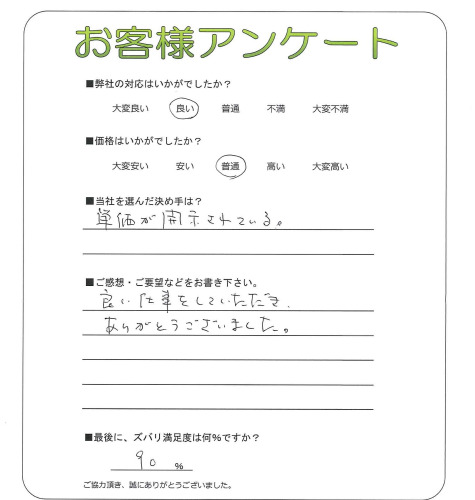 お客様アンケート
■弊社の対応はいかがでしたか？
大変良い 良い 普通 不満 大変不満
■価格はいかがでしたか？
大変安い 安い 普通 高い 大変高い
■当社を選んだ決め手は？
単価が開示されている。
■ご感想・ご要望などをお書き下さい。
良い仕事をしていただき
ありがとうございました。
■最後に、ズバリ満足度は何％ですか？
90 ％
ご協力頂き、誠にありがとうございました。